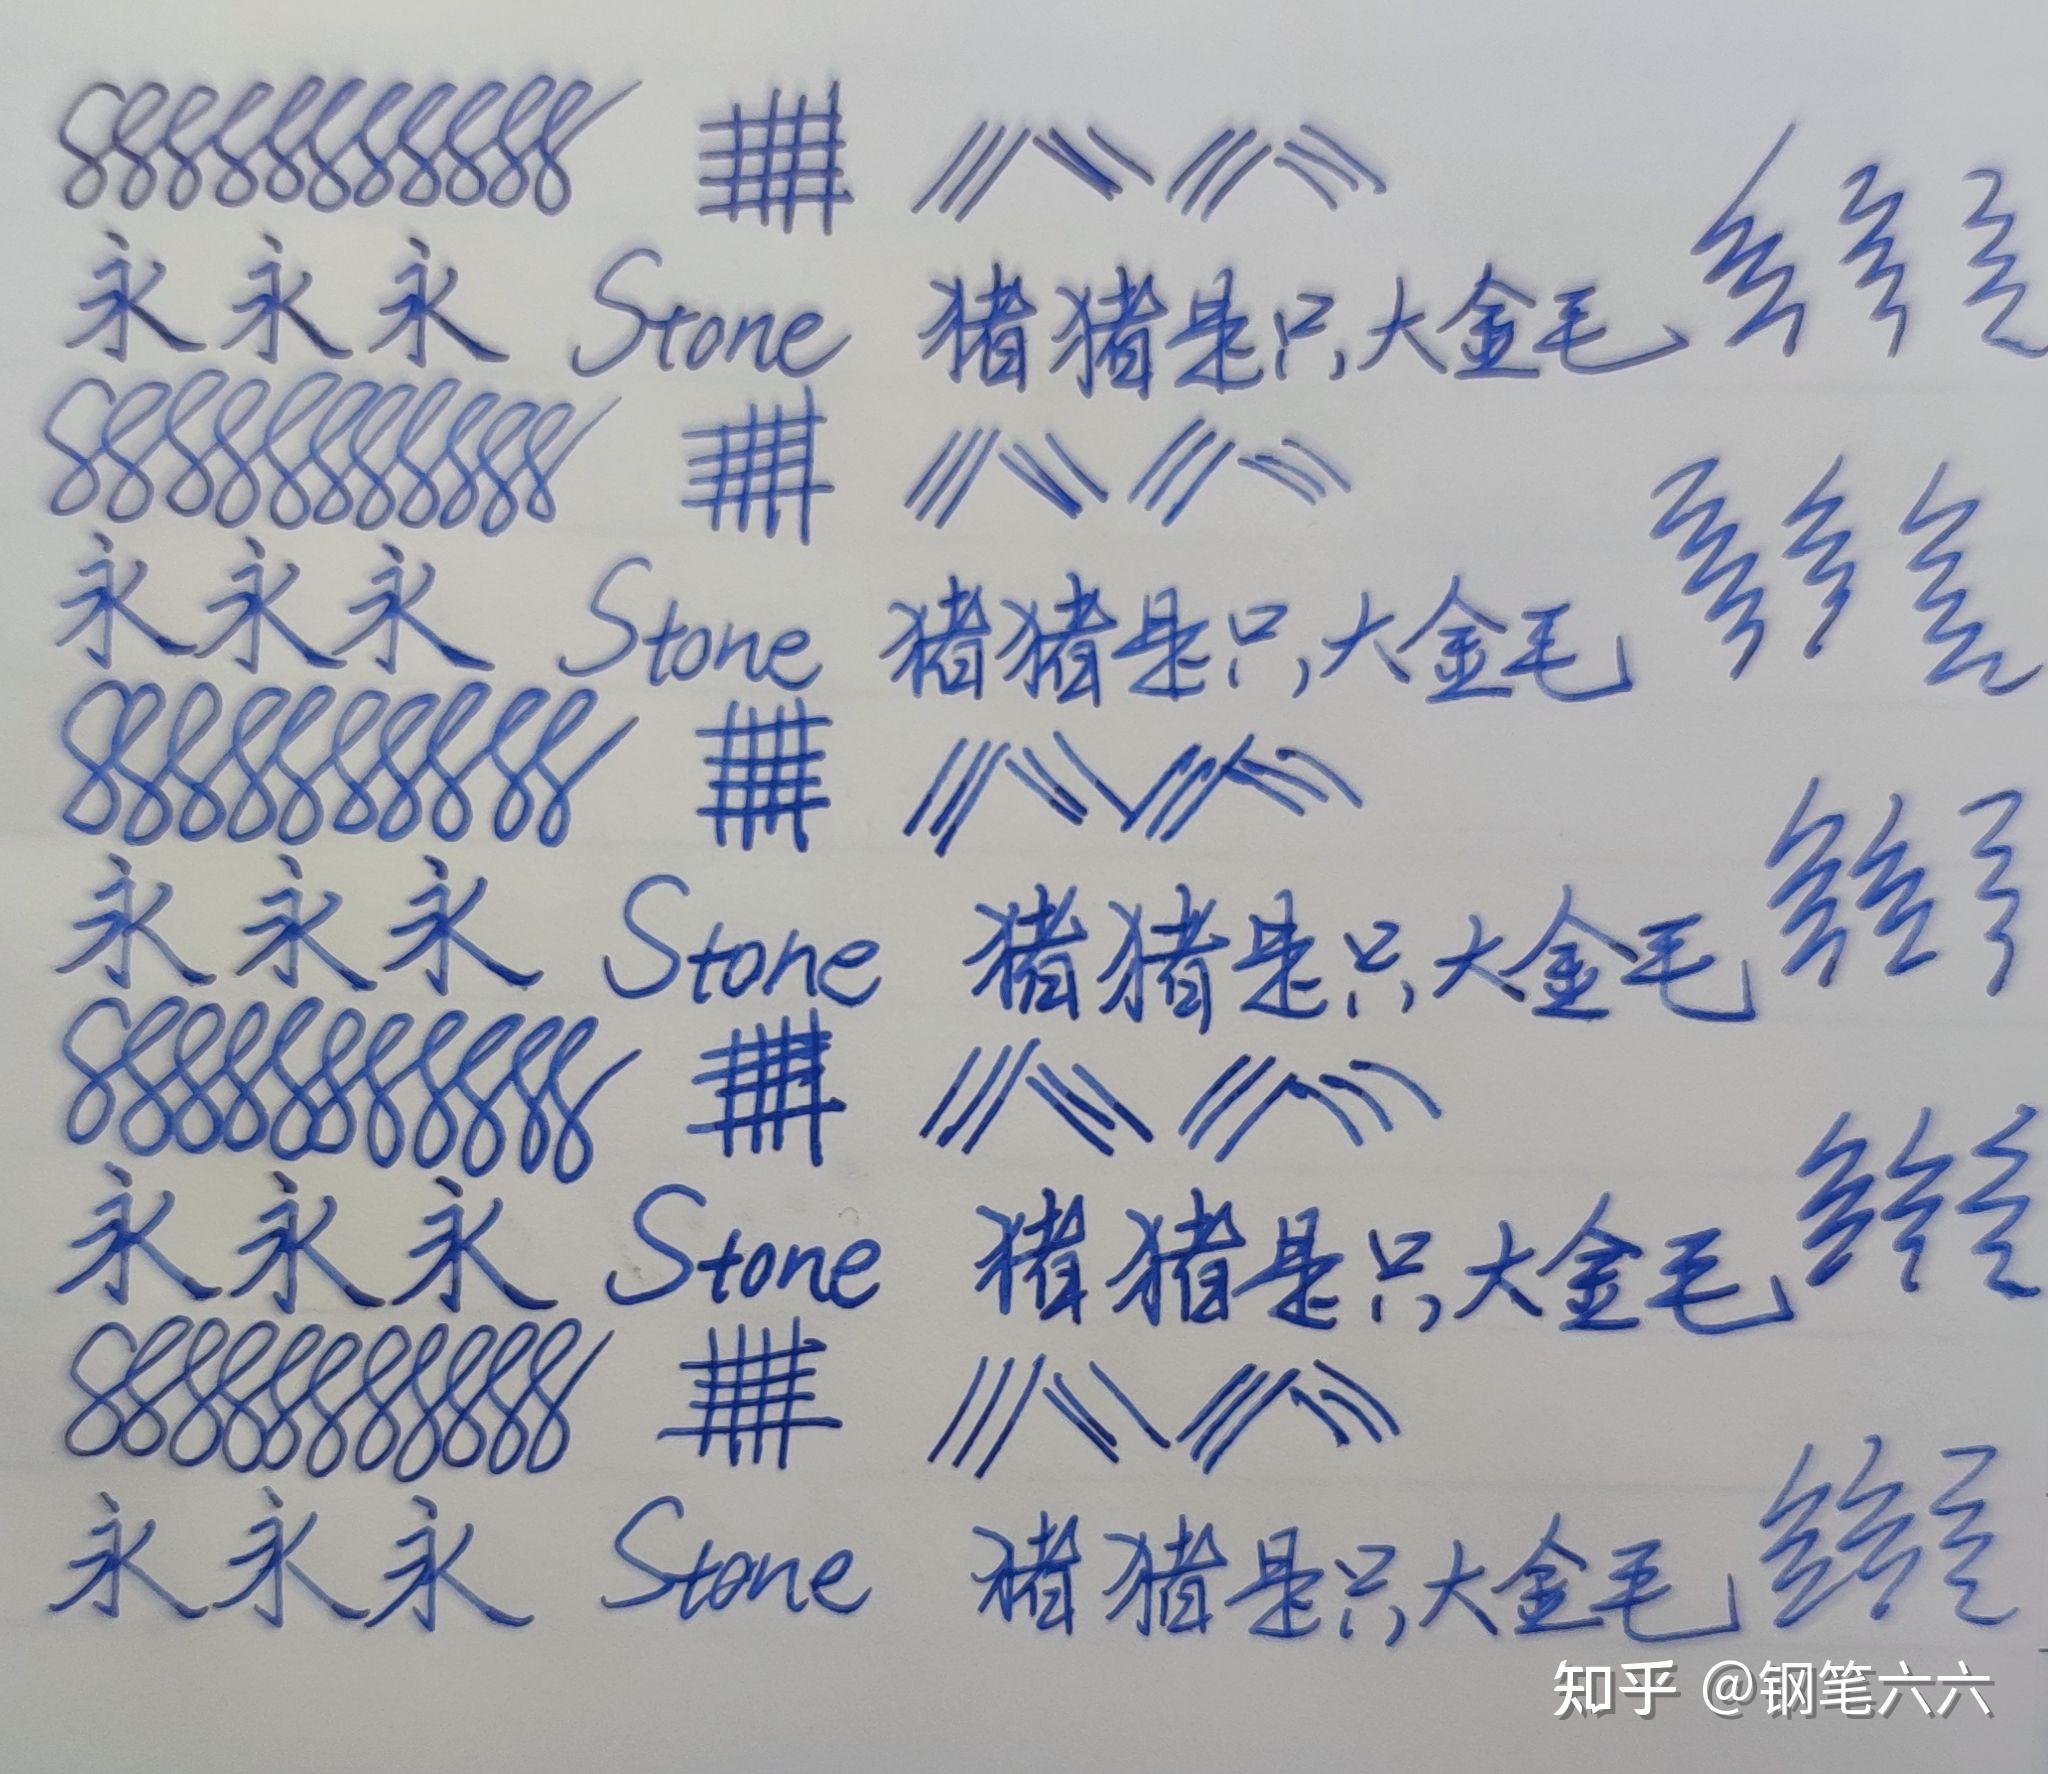 永 永 永 Stone 猪猪是只,大金毛
永 永 永 Stone 猪猪是只,大金毛
永 永 永 Stone 猪猪是只,大金毛
永 永 永 Stone 猪猪是只,大金毛
永 永 永 Stone 猪猪是只,大金毛
知乎 @钢笔六六